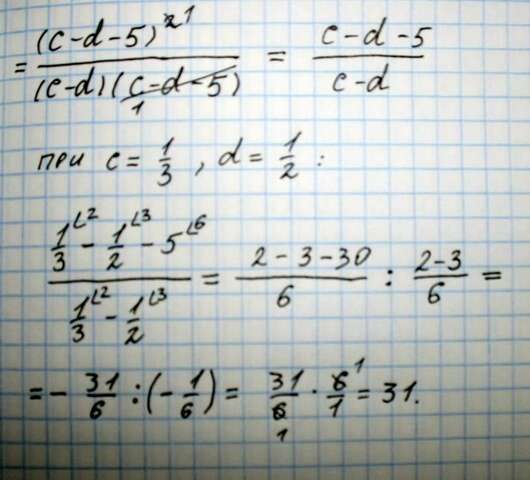 = (c-d-5)²¹ / (c-d)(c-d-5)₁ = c-d-5 / c-d
при c = 1/3, d = 1/2 :
1/3 ⌊2 - 1/2 ⌊3 - 5 ⌊6 / 1/3 ⌊2 - 1/2 ⌊3 = 2-3-30 / 6 : 2-3 / 6 =
= - 31/6 : (- 1/6) = 31/6₁ · 6¹/1 = 31.